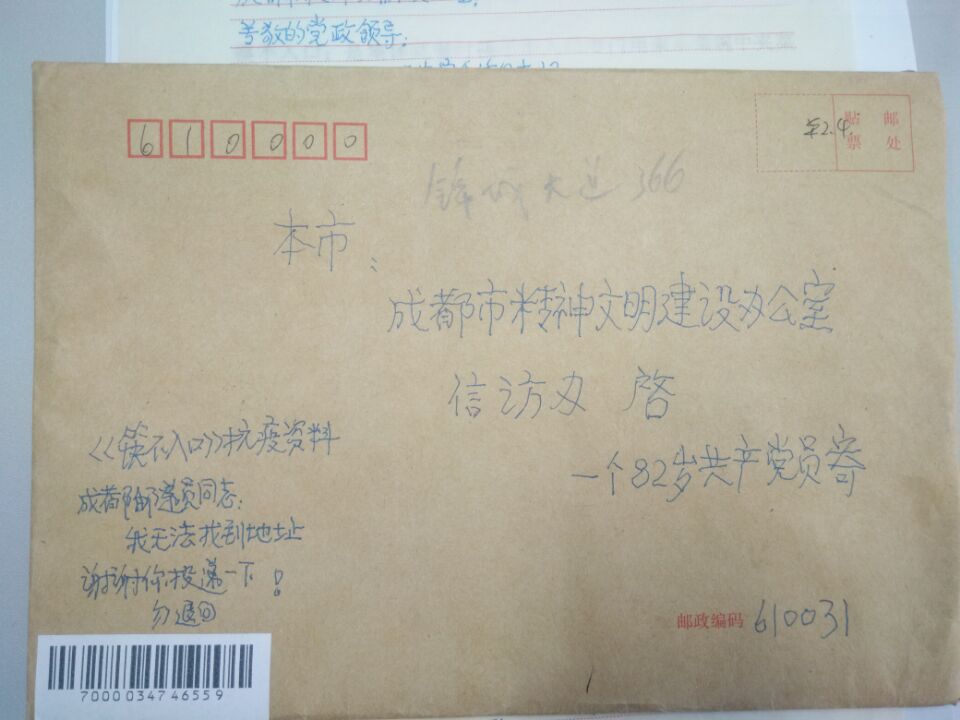 尊敬的党政领导:
610000
¥2.4
贴 邮
票 处
锦城大道366
本市:
成都市精神文明建设办公室
信访办 启
一个82岁共产党员寄
《筷不入口》抗疫资料
成都邮递员同志:
我无法找到地址
谢谢你投递一下!
勿退回
邮政编码 610031
7000034746559